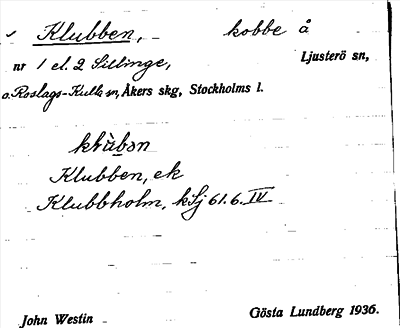 Klubben, kobbe å
nr 1 el. 2 Sillinge, Ljusterö sn,
o. Roslags-Kulla sn, Åkers skg, Stockholms l.
Klubben, ek
Klubbholm, kSj 61.6. IV
John Westin Gösta Lundberg 1936.